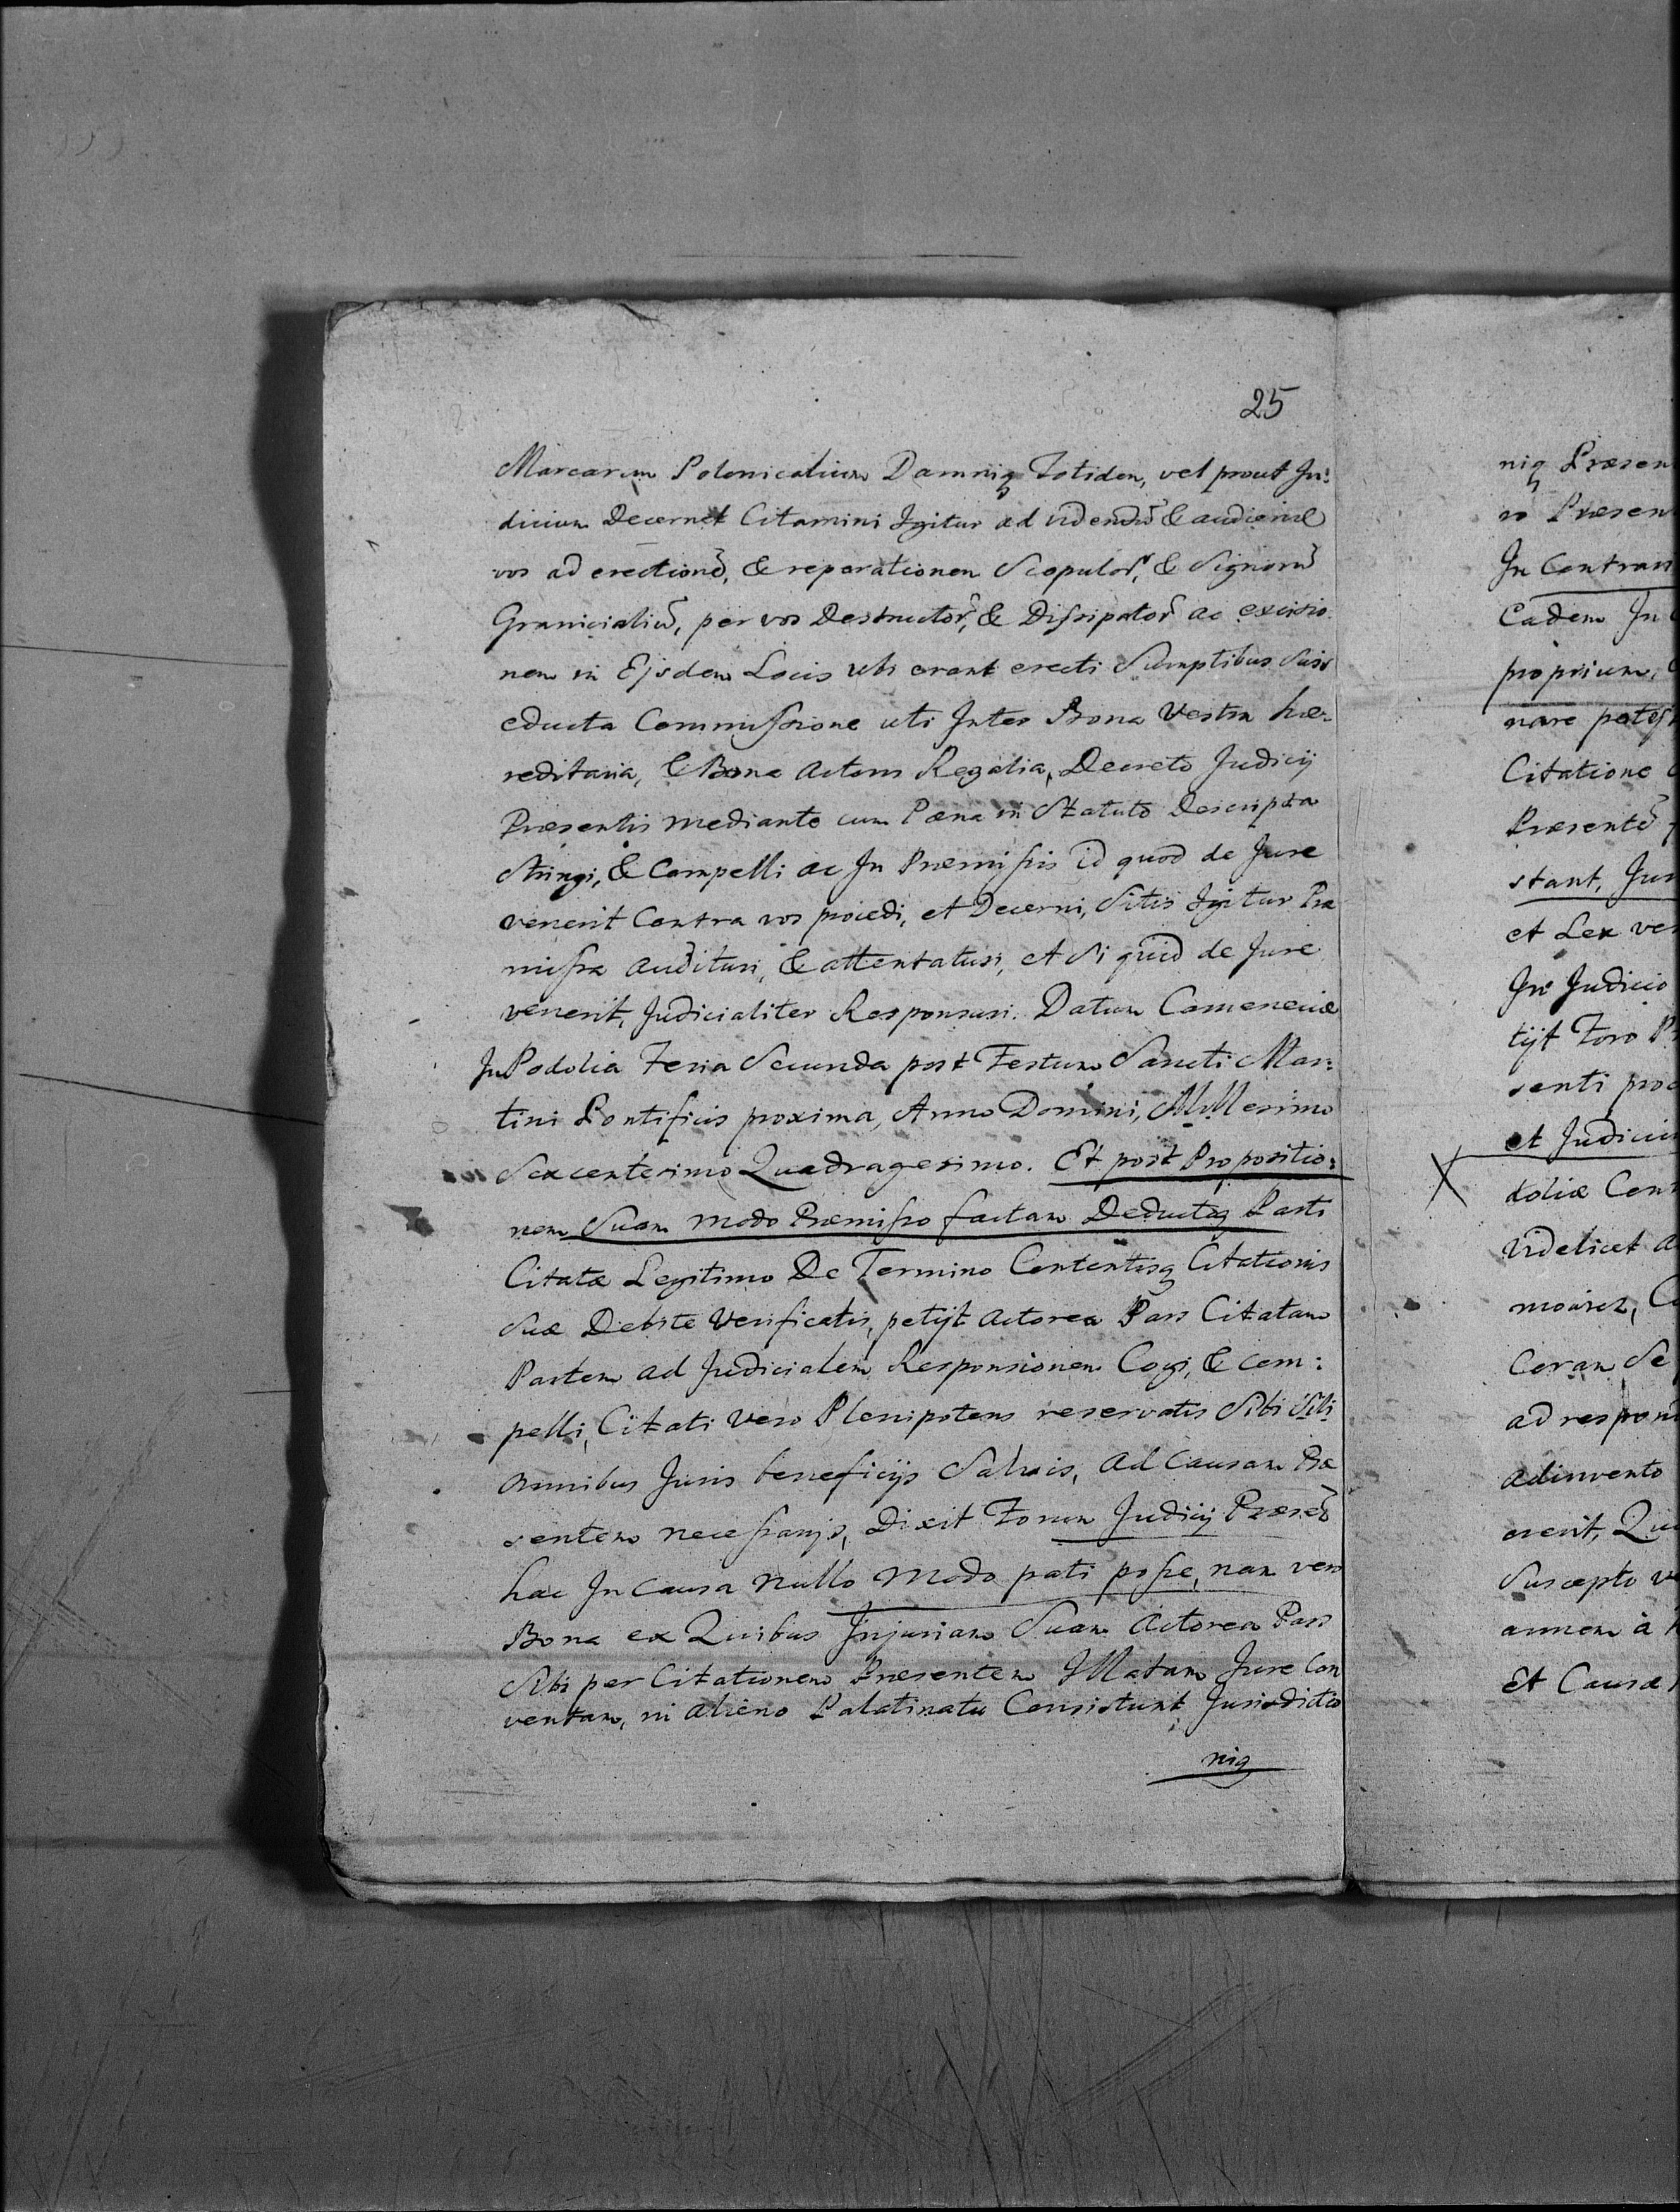 25
Marcarum Polonicalium Damniq Totidem, vel prout Ju:
dicium Decernet Citamini Igitur ad videndũ & audiend
vos ad erectionẽ, & reparationem Scopulor̃, & Signorũ
Granicialiũ, per vos Destructor̃, & Dissipator̃ ac excisio
nem in Ejsdem Locis ubi erant erecti Sumptibus Suis
educta Commissione uti Inter Bona Vestra hæ:
reditaria, & Bona Actoris Regalia, Decreto Judicij
Præsentis mediante cum Pæna in Statuto Descripta
Stringi, & Compelli ac In Præmissis id quod de Jure
venerit Contra vos procedi, et Decerni, Sitis Igitur Præ
missa audituri, & attentaturi, et Si quid de Jure
venerit, Judicialiter Responsuri. Datum Cameneciæ
In Podolia Feria Secunda post Festum Sancti Mar:
tini Pontificis proxima, Anno Domini, Millesimo
Sexcentesimo Quadragesimo. Et post Propositio:
nem Suam modo Præmisso factam Deductaq Parti
Citatæ Legitimo De Termino Contentisq Citationis
Suæ Debite Verificatis, petijt Actorea Pars Citatam
Partem ad Judicialem Responsionem Cogi, & com:
pelli, Citati Vero Plenipotens reservatis Sibi Sibi
omnibus Juris beneficijs Salvis, ad Causam Præ
sentem necessarijs, Dixit Forum Judicij Præsẽs
hac In Causa nullo modo pati posse, nam vero
Bona ex Quibus Injuriam Suam Actorea Pars
Sibi per Citationem Præsentem Illatam Jure Con
ventam, in alieno Palatinatu Consistunt Jurisdictio
niq
niq Præsen
Præsen
In Contrari
Eadem In
proprium,
nare potes
Citatione
Præsentẽ
stant, Jur
et Lex ve
In Judicio
tijt Foro P
senti pro
et Judiciu
doliæ Cont
Videlicet a
Coram Se
ad respon
adinvento
erit, Qu
Suscepto v
annem à
Et Causæ